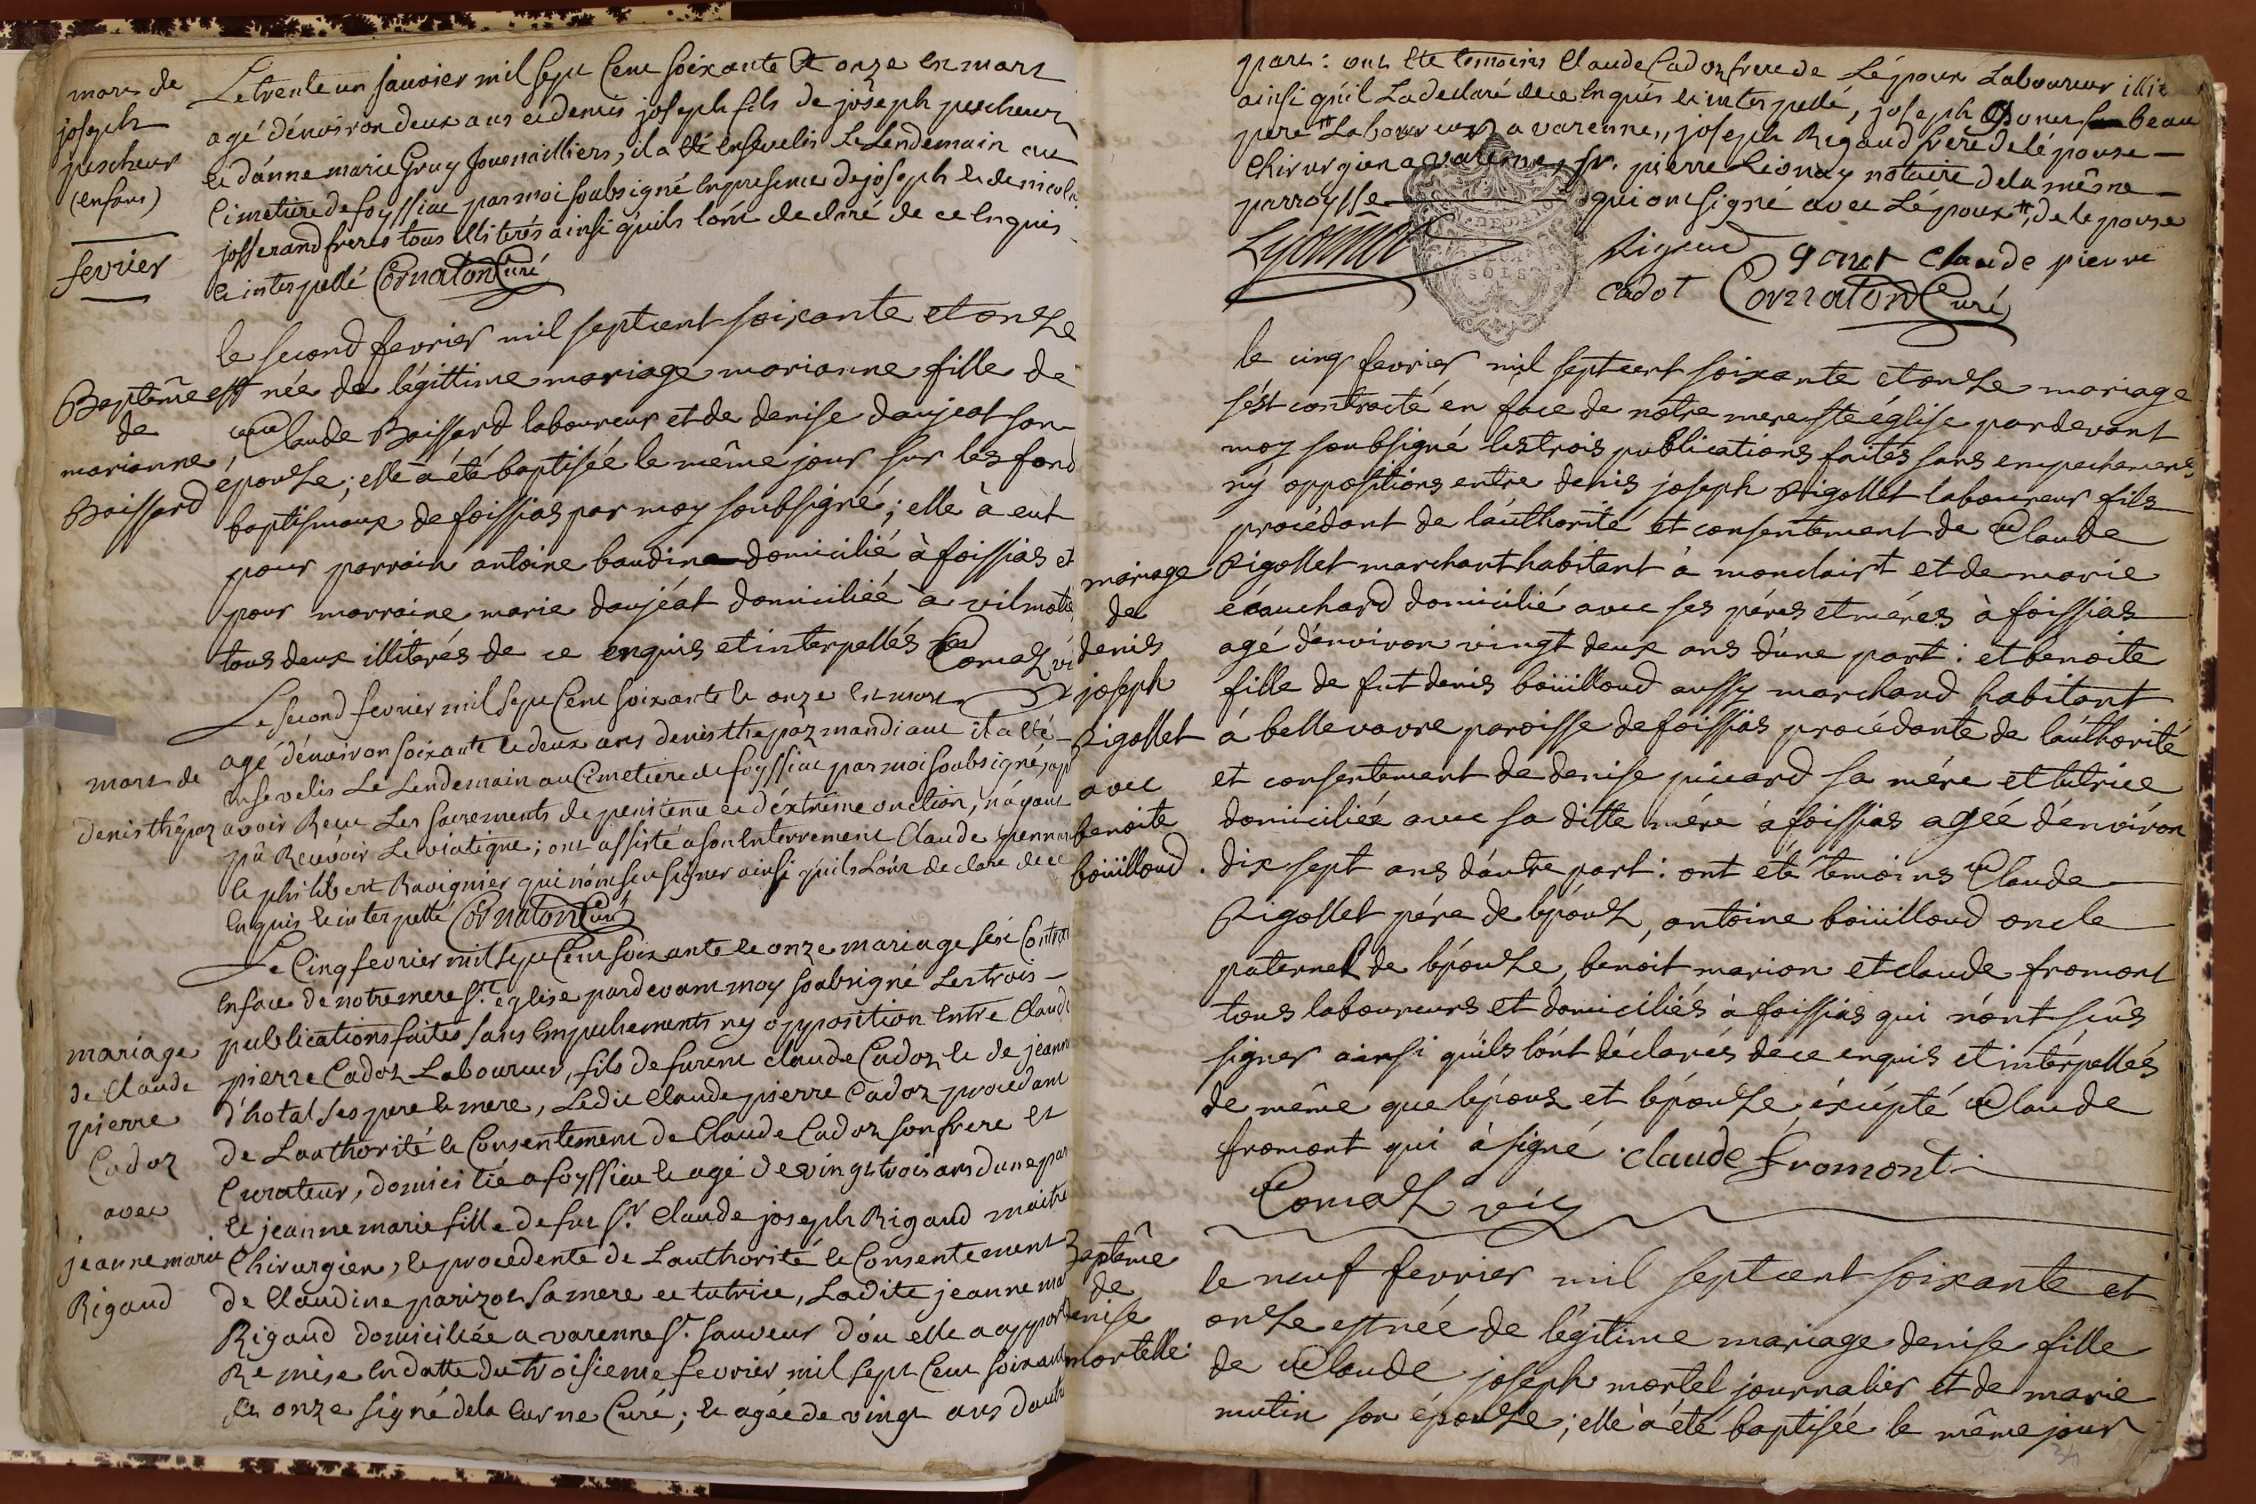 mort de
joseph
pescheur
(enfant)
Le trente un janvier mil sept cent soixante et onze est mort
agé d'environ deux ans et demis joseph fils de joseph pescheur
et d'anne marie Gruy journailliers, il a été ensevelis le lendemain au
cimetiere de foyssiac par moi soubsigné en presence de joseph et de nicolas
josserand freres tous illiterés ainsi qu'ils l'ont declaré de ce enquis
et interpellé Cornaton Curé
fevrier
Baptême
de
marianne
Boissard
le second fevrier mil septcent soixante et onze
est née de légittime mariage marianne fille de
Claude Boissard laboureur et de denise daujeat son
épouse; elle à été baptisée le même jour sur les fond
baptismaux de foissias par moy soubsigné; elle à eut
pour parrain antoine baudin domicilié à foissias et
pour marraine marie daujéat domiciliée à vilmotie
tous deux illiterés de ce enquis et interpellés Comaz vi
mort de
denis thépoz
Le second fevrier mil sept cent soixante et onze est mort
agé d'environ soixante et deux ans denis thepoz mandiant il a été
ensevelis le lendemain au cimetiere de foyssiac par moi soubsigné, ap
avoir Recu les sacrements de penitence et d'extrême onction, n'ayant
pû Recevoir le viatique; ont assisté a son enterrement Claude
et philibert Ravignier qui n'ont sçu signer ainsi qu'ils l'ont declaré de ce
enquis et interpellé Cornaton Curé
mariage
de Claude
pierre
Cadoz
avec
jeanne marie
Rigaud
Le Cinq fevrier mil sept Cent soixante et onze mariage s'est Contrac
en face de notre mere Ste église pardevant moy soubsigné les trois
publications faites sans empechements ny opposition entre Claude
pierre Cadoz Laboureur, fils de furent claude Cadoz et de jeanne
d'hotal ses pere et mere, Ledit Claude pierre Cadoz procedant
de Lauthorité et Consentement de Claude Cadoz son frere et
Curateur, domicilié a foyssiac et agé de vingt trois ans d'une part
et jeanne marie fille de fut Sr. Claude joseph Rigaud maitre
Chirurgien, et procedente de Lauthorité et Consentement
de Claudine parizot sa mere et tutrice, Ladite jeanne mar
Rigaud domiciliée a varenne St. sauveur d'ou elle a apport
Remise en datte du troisieme fevrier mil sept Cent soixante
et onze signé dela Curne Curé; et agée de vingt ans d'autre
part: ont été temoins Claude Cadoz frere de Lépoux Laboureur illit
ainsi qu'il La declaré de ce enquis et interpellé, joseph beau
pere Laboureur a varenne, joseph Rigaud frere de lépouse
Chirurgien a varenne, Sr. pierre Léonay notaire dela même
parroysse qui ont signé avec Lépoux,, de lepouse
Rigaud Claude pierre
cadot Cornaton Curé
mariage
de
denis
joseph
Rigollet
avec
benoite
boüilloud
le cinq fevrier mil septcent soixante et onze mariage
s'est contracté en face de nôtre mere ste église pardevant
moy soubsigné les trois publications faites sans empechements
ny oppositions entre denis joseph Rigollet laboureur fils
procédant de l'authorité et consentement de Claude
Rigollet marchant habitant à monclairt et de marie
écauchard domicilié avec ses péres et méres à foissias
agé d'environ vingt deux ans d'une part: et benoite
fille de fut denis boüilloud aussy marchand habitant
à bellevavre paroisse de foissias procédante de l'authorité
et consentement de denise puvard sa mére et tutrice
domiciliée avec sa ditte mére à foissias agée d'environ
dix sept ans d'autre part: ont été témoins Claude
Rigollet pére de l'époux, antoine boüilloud oncle
paternel de l'épouse, benoit marion et claude fromont
tous laboureurs et domiciliés à foissias qui n'ont sçûs
signer ainsi qu'ils l'ont déclarés de ce enquis et interpellés
de même que l'époux et l'épouse, éxcépté Claude
fromont qui à signé. claude fromont
Comaz vic
Baptême
de
denise
mortelle
le neuf fevrier mil septcent soixante et
onze est née de légitime mariage denise fille
de Claude joseph mortel journalier et de marie
mutin son épouse; elle à été baptisée le même jour